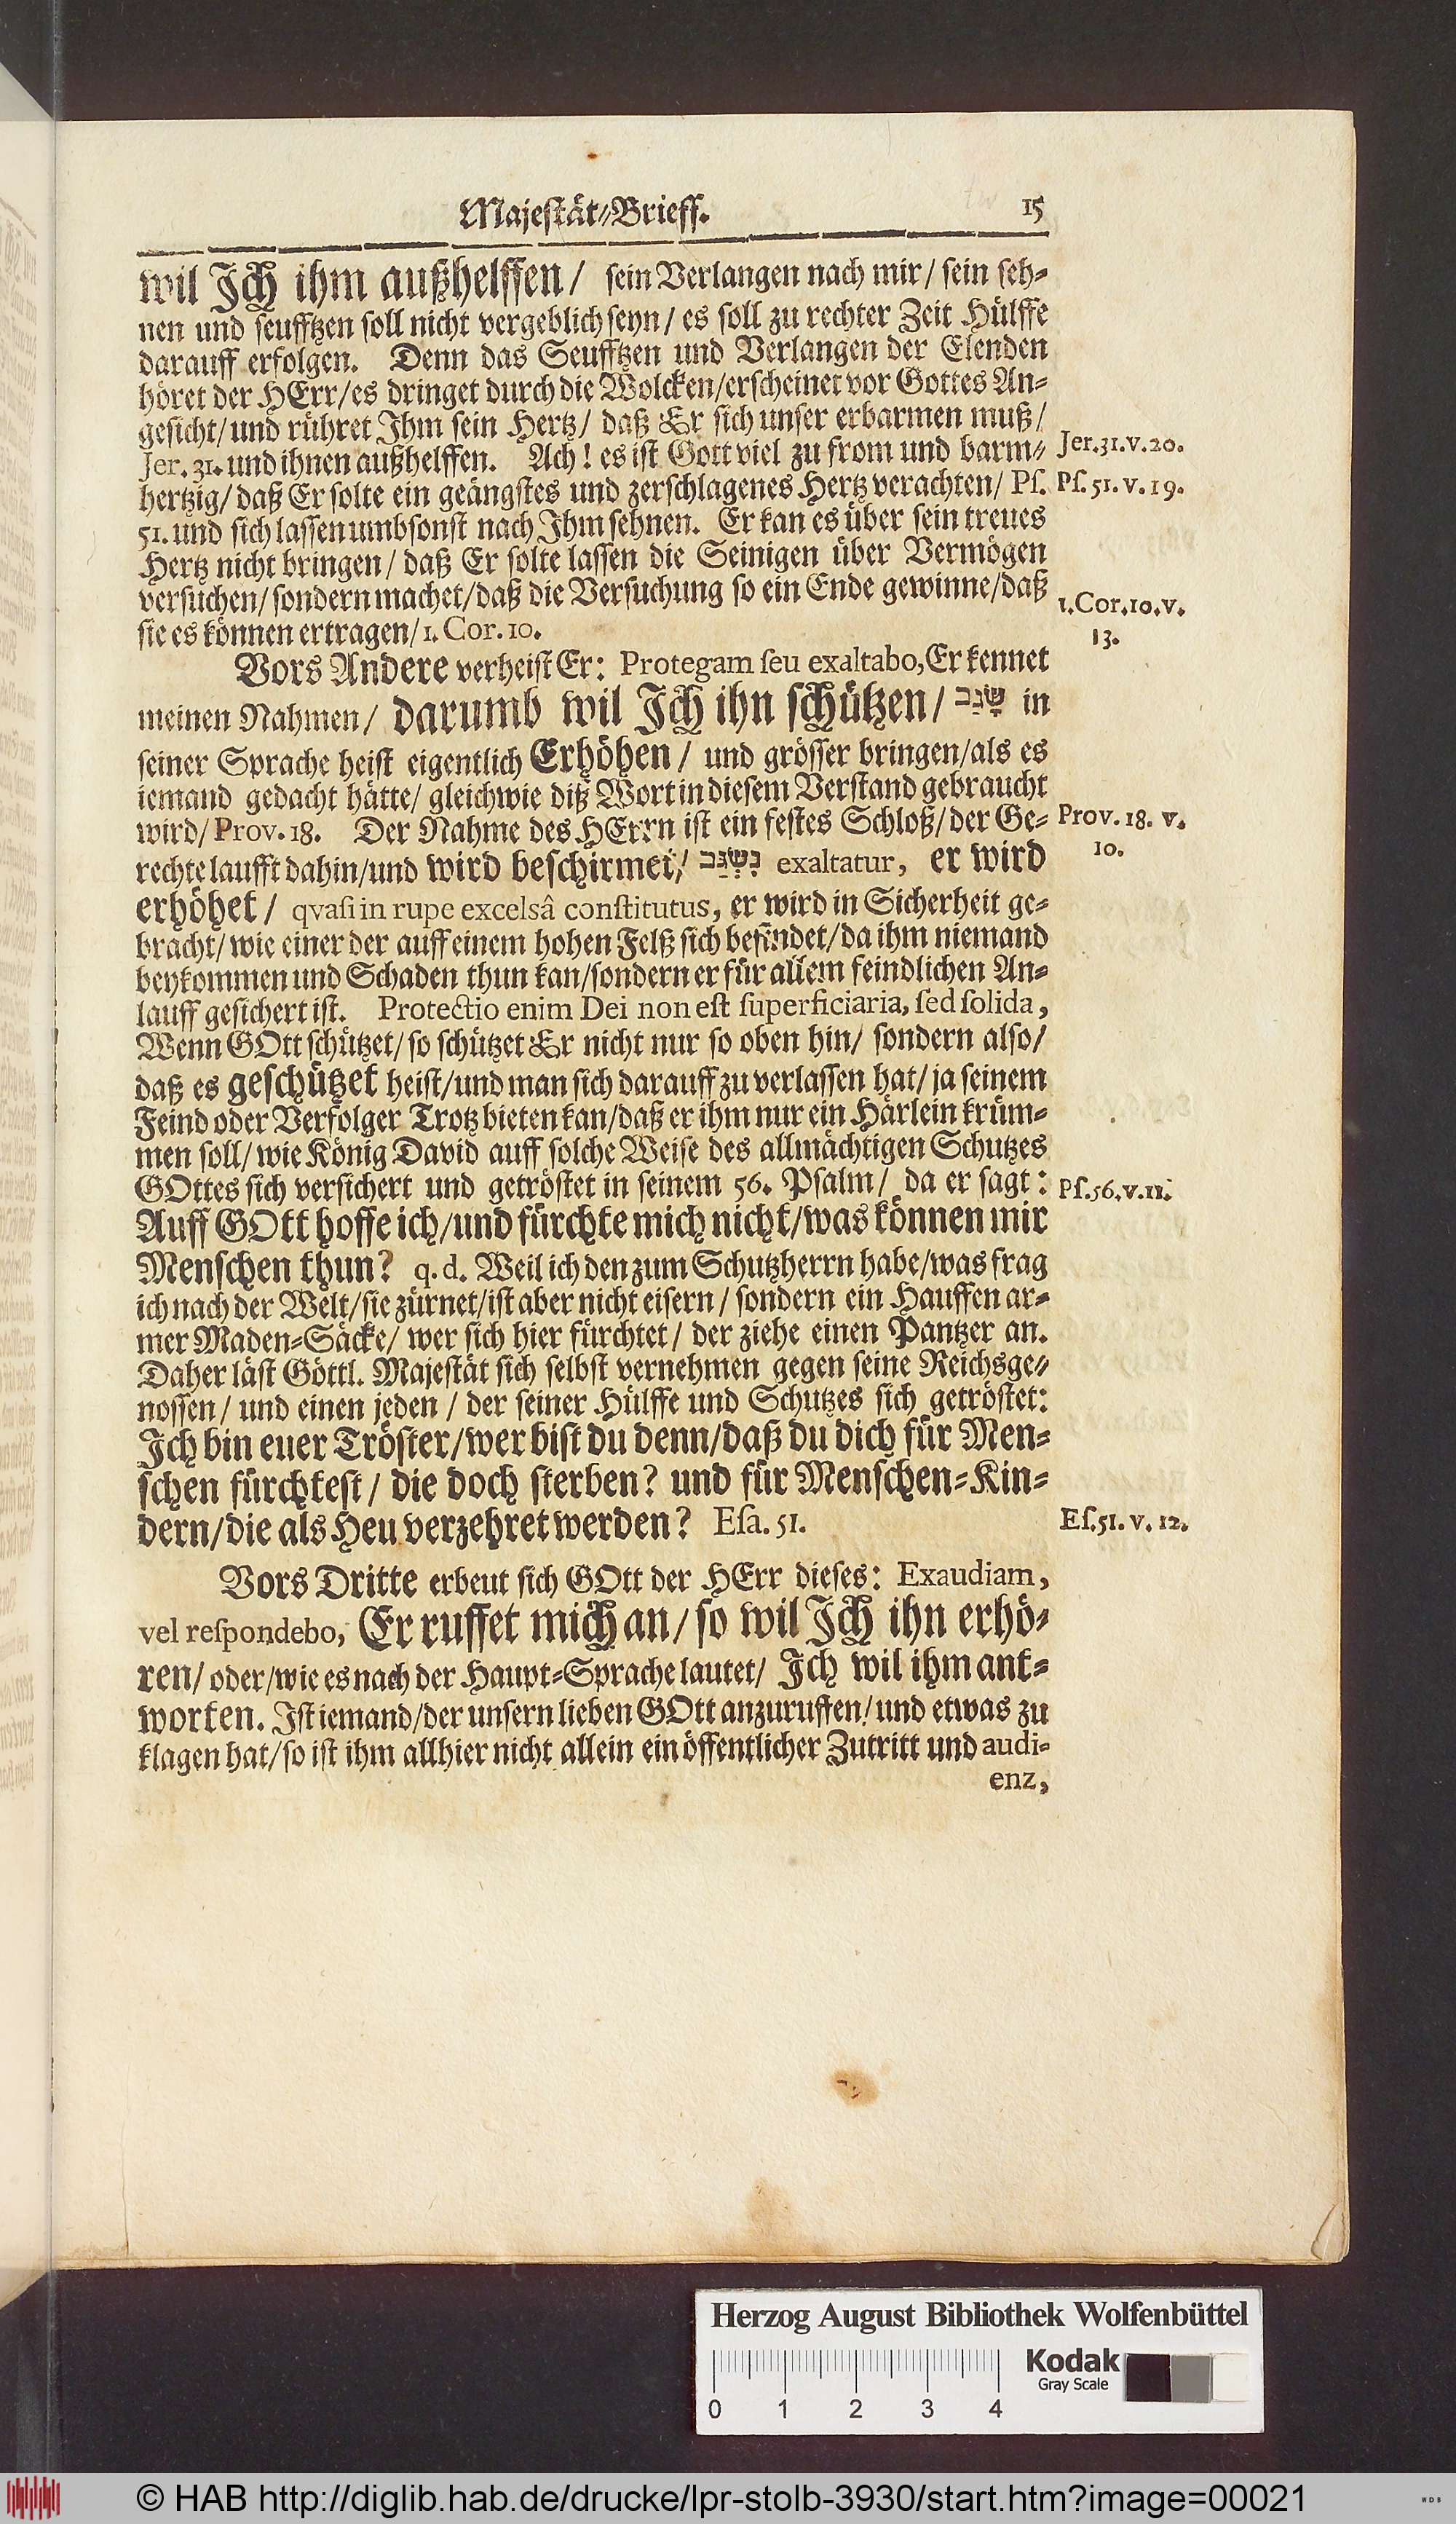 Majestät-Brieff. 15
wil Ich ihm außhelffen/ sein Verlangen nach mir/ sein seh-
nen und seufftzen soll nicht vergeblich seyn/ es soll zu rechter Zeit Hülffe
darauff erfolgen. Denn das Seufftzen und Verlangen der Elenden
höret der HErr/es dringet durch die Wolcken/erscheinet vor Gottes An-
gesicht/und rühret Ihm sein Hertz/ daß Er sich unser erbarmen muß/
Jer. 31. und ihnen außhelffen. Ach! es ist Gott viel zu from und barm-
Jer. 31. v. 20.
hertzig/ daß Er solte ein geängstes und zerschlagenes Hertz verachten/ Pſ.
Pſ. 51. v. 19.
51. und sich lassen umbsonst nach Ihm sehnen. Er kan es über sein treues
Hertz nicht bringen/ daß Er solte lassen die Seinigen über Vermögen
versuchen/sondern machet/daß die Versuchung so ein Ende gewinne/daß
1. Cor. 10. v.
sie es können ertragen/1. Cor. 10.
13.
Vors Andere verheist Er: Protegam ſeu exaltabo, Er kennet
meinen Nahmen/ darumb wil Ich ihn schützen/ שׂגב in
seiner Sprache heist eigentlich Erhöhen/ und grösser bringen/als es
iemand gedacht hätte/ gleichwie ditz Wort in diesem Verstand gebraucht
wird/Prov. 18. Der Nahme des HErrn ist ein festes Schloß/der Ge-
Prov. 18. v.
rechte laufft dahin/und wird beschirmet/ נשׂגב exaltatur, er wird
10.
erhöhet/ qvaſi in rupe excelsâ conſtitutus, er wird in Sicherheit ge-
bracht/ wie einer der auff einem hohen Felß sich befindet/da ihm niemand
beykommen und Schaden thun kan/sondern er für allem feindlichen An-
lauff gesichert ist. Protectio enim Dei non eſt ſuperficiaria, ſed ſolida,
Wenn GOtt schützet/ so schützet Er nicht nur so oben hin/ sondern also/
daß es geschützet heist/und man sich darauff zu verlassen hat/ ja seinem
Feind oder Verfolger Trotz bieten kan/daß er ihm nur ein Härlein krüm-
men soll/ wie König David auff solche Weise des allmächtigen Schutzes
GOttes sich versichert und getröstet in seinem 56. Psalm/ da er sagt:
Pſ. 56. v. 11.
Auff GOtt hoffe ich/und fürchte mich nicht/was können mir
Menschen thun? q. d. Weil ich den zum Schutzherrn habe/was frag
ich nach der Welt/sie zürnet/ist aber nicht eisern/ sondern ein Hauffen ar-
mer Maden-Säcke/ wer sich hier fürchtet/ der ziehe einen Pantzer an.
Daher läst Göttl. Majestät sich selbst vernehmen gegen seine Reichsge-
nossen/ und einen jeden/ der seiner Hülffe und Schutzes sich getröstet:
Ich bin euer Tröster/wer bist du denn/daß du dich für Men-
schen fürchtest/ die doch sterben? und für Menschen-Kin-
dern/die als Heu verzehret werden? Eſa. 51.
Eſ. 51. v. 12.
Vors Dritte erbeut sich GOtt der HErr dieses: Exaudiam,
vel reſpondebo, Er ruffet mich an/ so wil Ich ihn erhö-
ren/ oder/wie es nach der Haupt-Sprache lautet/ Ich wil ihm ant-
worten. Ist iemand/der unsern lieben GOtt anzuruffen/und etwas zu
klagen hat/so ist ihm allhier nicht allein ein öffentlicher Zutritt und audi-
enz,
Herzog August Bibliothek Wolfenbüttel
Kodak
Gray Scale
0 1 2 3 4
© HAB http://diglib.hab.de/drucke/lpr-stolb-3930/start.htm?image=00021
WDB